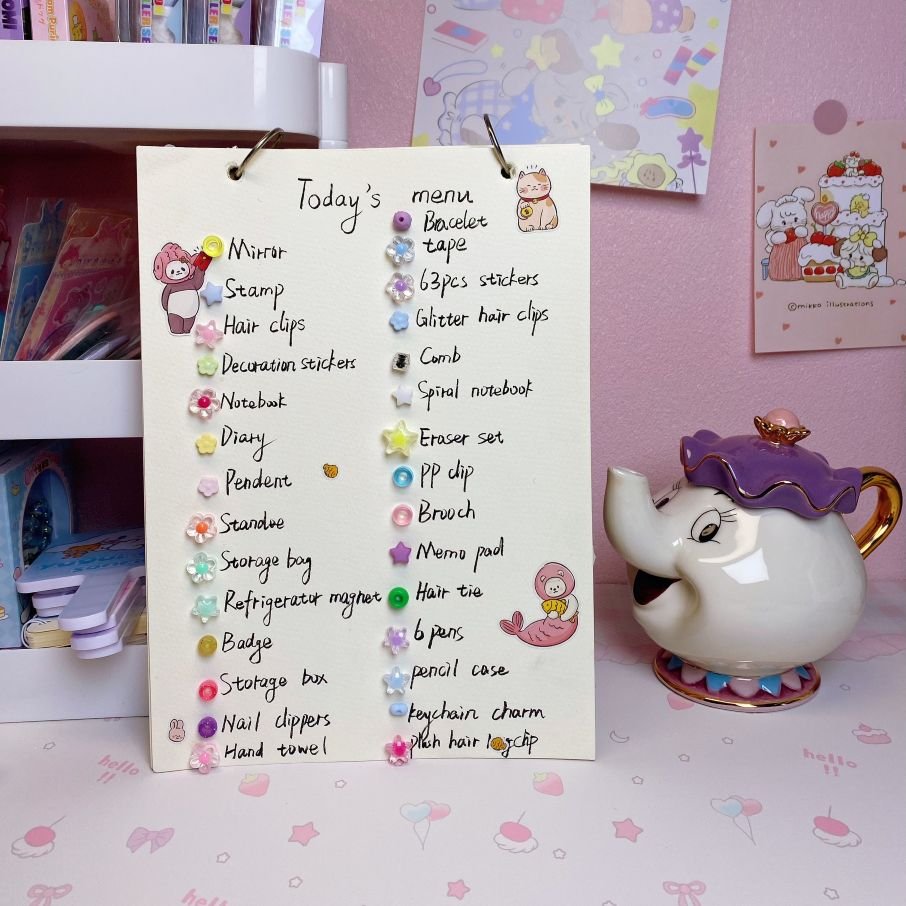 Today's menu
Mirror
Stamp
Hair clips
Decoration stickers
Notebook
Diary
Pendent
Standue
Storage bag
Refrigerator magnet
Badge
Storage box
Nail clippers
Hand towel
Bracelet
tape
63pcs stickers
Glitter hair clips
Comb
Spiral notebook
Eraser set
PP clip
Brooch
Memo pad
Hair tie
6 pens
pencil case
keychain charm
plush hair clip
©mikko illustrations
hello
!!
hello
!!
hello
hello